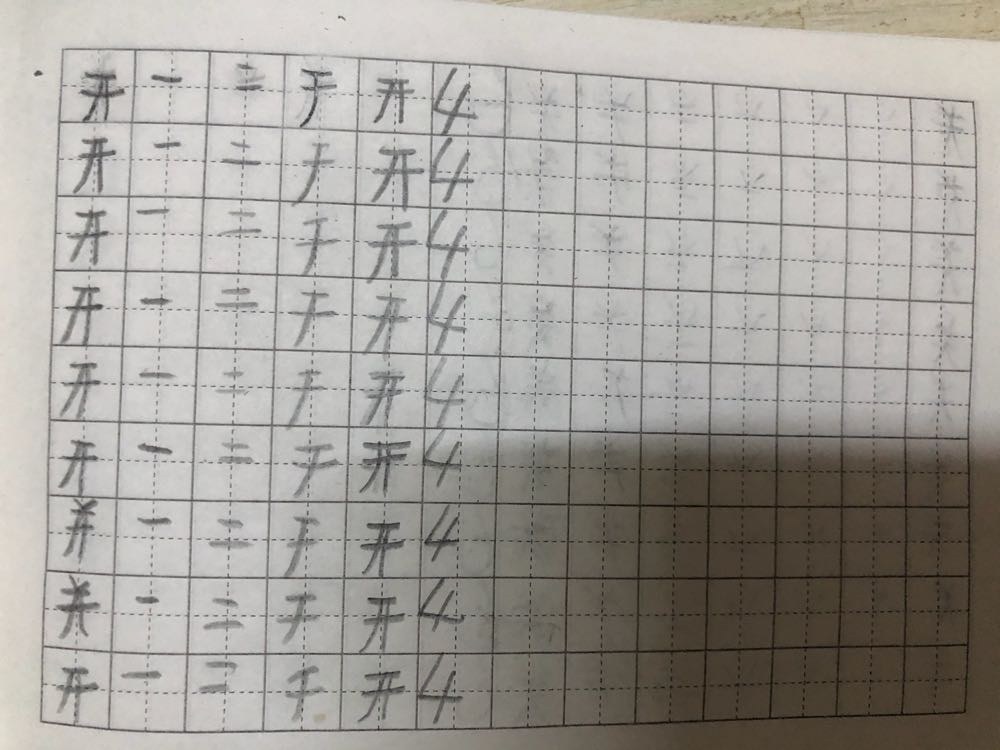 开 一 二 于 开 4
开 一 二 于 开 4
开 一 二 于 开 4
开 一 二 于 开 4
开 一 二 于 开 4
开 一 二 于 开 4
一 二 于 开 4
一 二 于 开 4
开 一 二 于 开 4